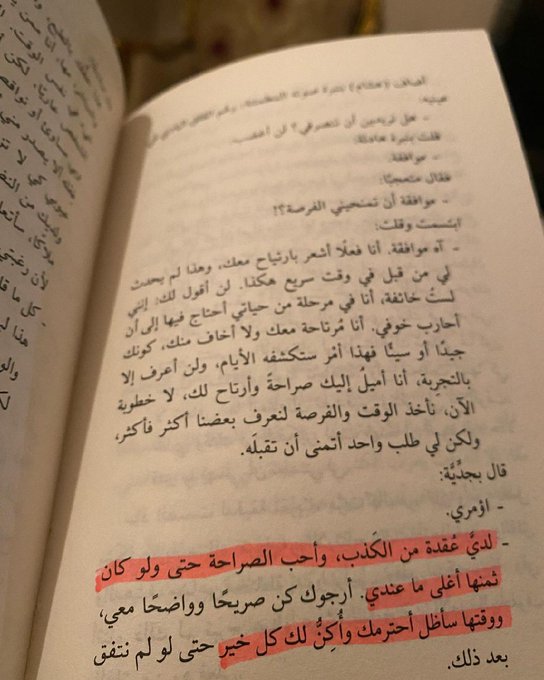 أضاف (هشام) بنبرة صوت
عينيه:
- هل تريدين أن تنصرفي؟ لن أغضب.
قلت بنبرة هادئة:
- موافقة.
فقال متعجبًا:
- موافقة أن تمنحيني الفرصة؟!
ابتسمت وقلت:
- آه موافقة. أنا فعلًا أشعر بارتياح معك، وهذا لم يحدث
لي من قبل في وقت سريع هكذا. لن أقول لك: إنني
لستُ خائفة، أنا في مرحلة من حياتي أحتاج فيها إلى أن
أحارب خوفي. أنا مُرتاحة معك ولا أخاف منك، كونك
جيدًا أو سيئًا فهذا أمْر ستكشفه الأيام، ولن أعرف إلا
بالتجرِبة، أنا أميلُ إليك صراحةً وأرتاح لك، لا خطوبة
الآن، نأخذ الوقت والفرصة لنعرف بعضنا أكثر فأكثر،
ولكن لي طلب واحد أتمنى أن تقبلَه.
قال بجدِّيَّة:
- اؤمري.
- لديَّ عُقدة من الكَذب، وأحب الصراحة حتى ولو كان
ثمنها أغلى ما عندي. أرجوك كن صريحًا وواضحًا معي،
ووقتها سأظل أحترمك وأُكِنُّ لك كل خير حتى لو لم نتفق
بعد ذلك.